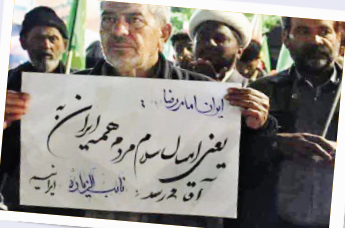 ایران امام رضا :
یعنی امسال سلام مردم همه ایران به
آقا می رسد : نائب الزیاره ایرانیه